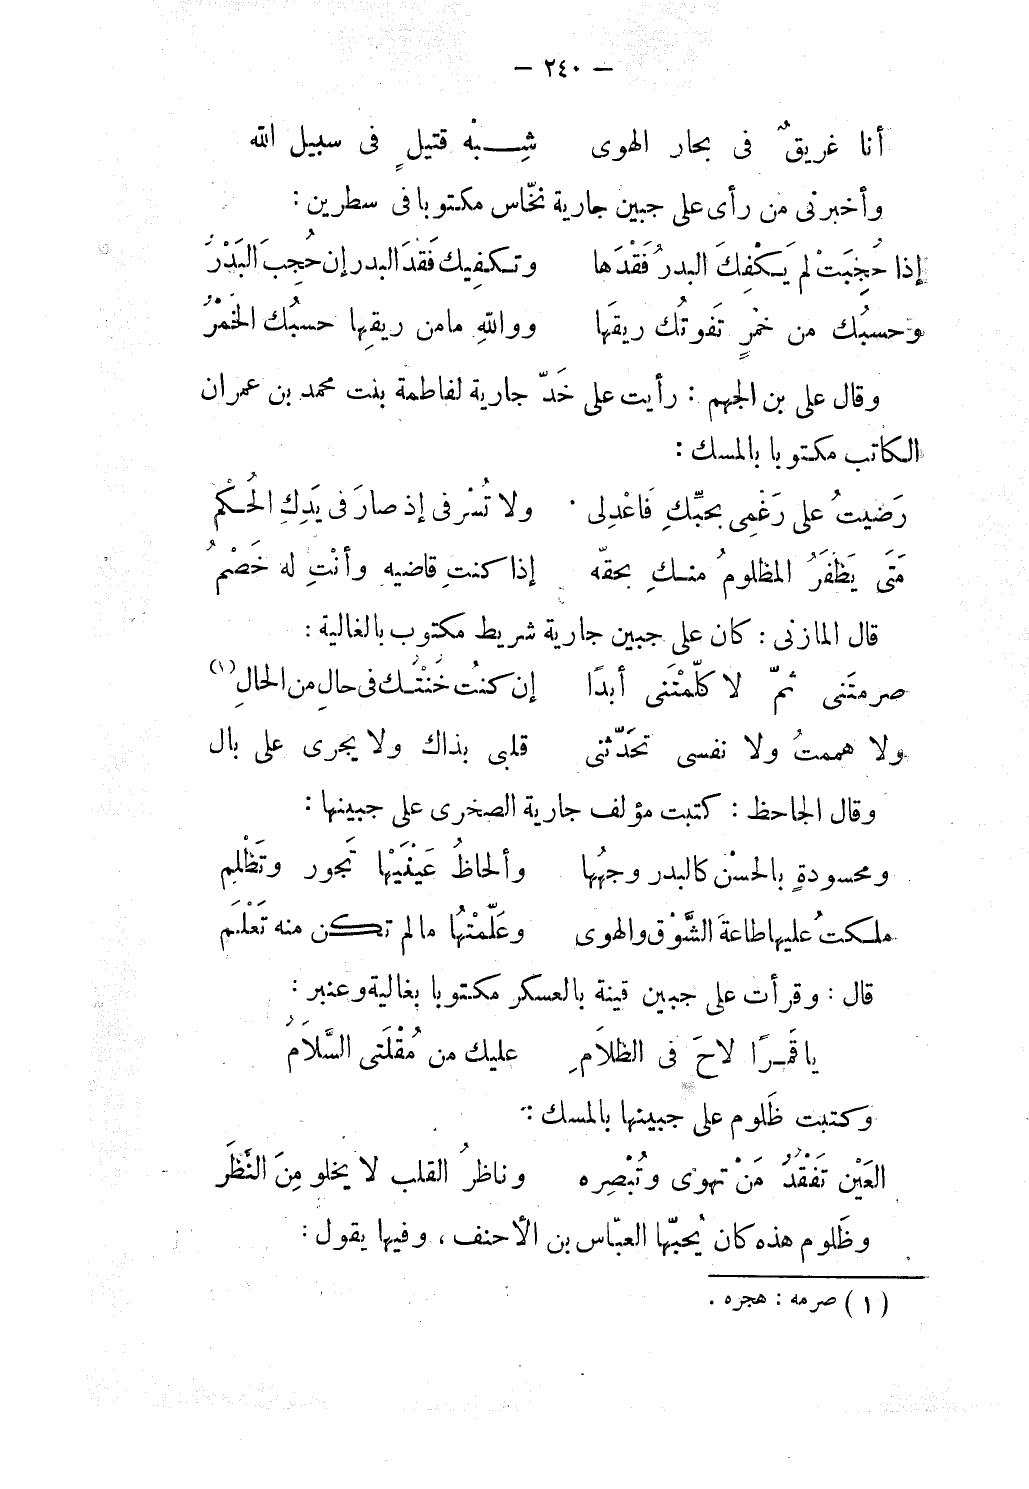 — ٢٤٠ —
أنا غريقٌ فى بحار الهوى شِبْه قتيلٍ فى سبيل الله
وأخبرنى من رأى على جبين جارية نخّاس مكتوبا فى سطرين :
إذا حُجِبَتْ لم يَكْفِكَ البدرُ فَقْدَها وتكفِيك فَقْدَ البدر إن حُجِبَ البَدْرُ
وحسبُك من خمْرٍ تَفوتُك ريقَها وواللهِ مامن ريقِها حسبُك الخَمْرُ
وقال على بن الجهم : رأيت على خَدّ جارية لفاطمة بنت محمد بن عمران
الكاتب مكتوبا بالمسك :
رَضيتُ على رَغْمِى بحبِّكِ فَاعْدِلى ولا تُسْرفى إذ صارَ فى يَدِكِ الحُكْم
مَتَى يَظْفَرُ المظلومُ منكِ بحقّه إذا كنتِ قاضيه وأنْتِ له خَصْمُ
قال المازنى : كان على جبين جارية شريط مكتوب بالغالية :
صرمتَنى ثمّ لا كلّمْتَنى أبدًا إن كنتُ خُنْتُك فى حالٍ من الحالِ (١)
ولا هممتُ ولا نفسى تحَدّثنى قلبى بذاك ولا يجرى على بال
وقال الجاحظ : كتبت مؤلف جارية الصخرى على جبينها :
ومحسودةٍ بالحسْن كالبدر وجهُها وألحاظُ عَيْنَيْها تَجور وتَظْلِم
ملكتُ عليها طاعةَ الشَّوْق والهوى وعَلّمْتُها مالم تكن منه تَعْلَم
قال : وقرأت على جبين قينة بالعسكر مكتوبا بغالية وعنبر :
يا قَمَرًا لاحَ فى الظلاَمِ عليك من مُقْلَتى السَّلاَمُ
وكتبت ظَلوم على جبينها بالمسك :
العَيْن تَفْقُدُ مَنْ تهوى وتُبْصِره وناظرُ القلب لا يخلو مِنَ النَّظَر
وظَلوم هذه كان يُحبّها العبّاس بن الأحنف ، وفيها يقول :
(١) صرمه : هجره .